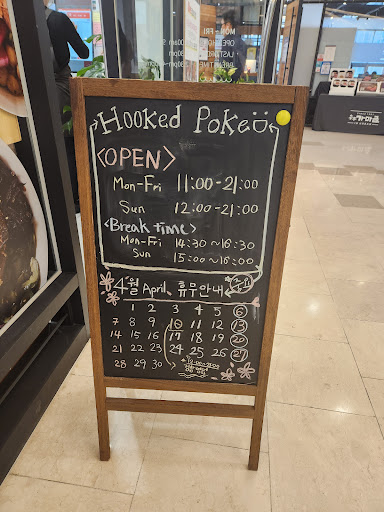 MON - FRI
Hooked Poke
<OPEN>
Mon-Fri 11:00-21:00
Sun 12:00-21:00
<Break time>
Mon-Fri 14:30~16:30
Sun 15:00~16:00
4월 April, 휴무안내
1 2 3 4 5 6
7 8 9 10 11 12 13
14 15 16 17 18 19 20
21 22 23 24 25 26 27
28 29 30